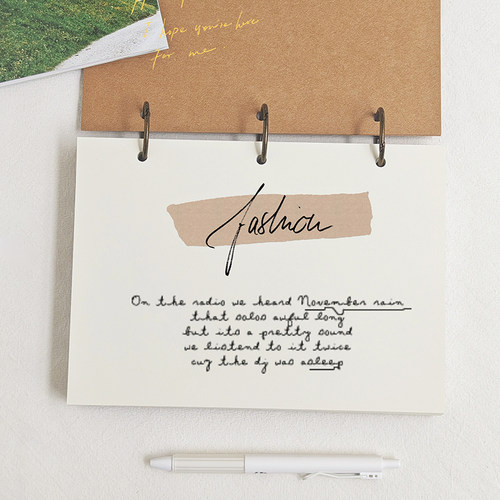 I hope you're here
for me
fashion
On the radio we heard November rain
that solos awful long
but its a pretty sound
we listend to it twice
cuz the dj was asleep